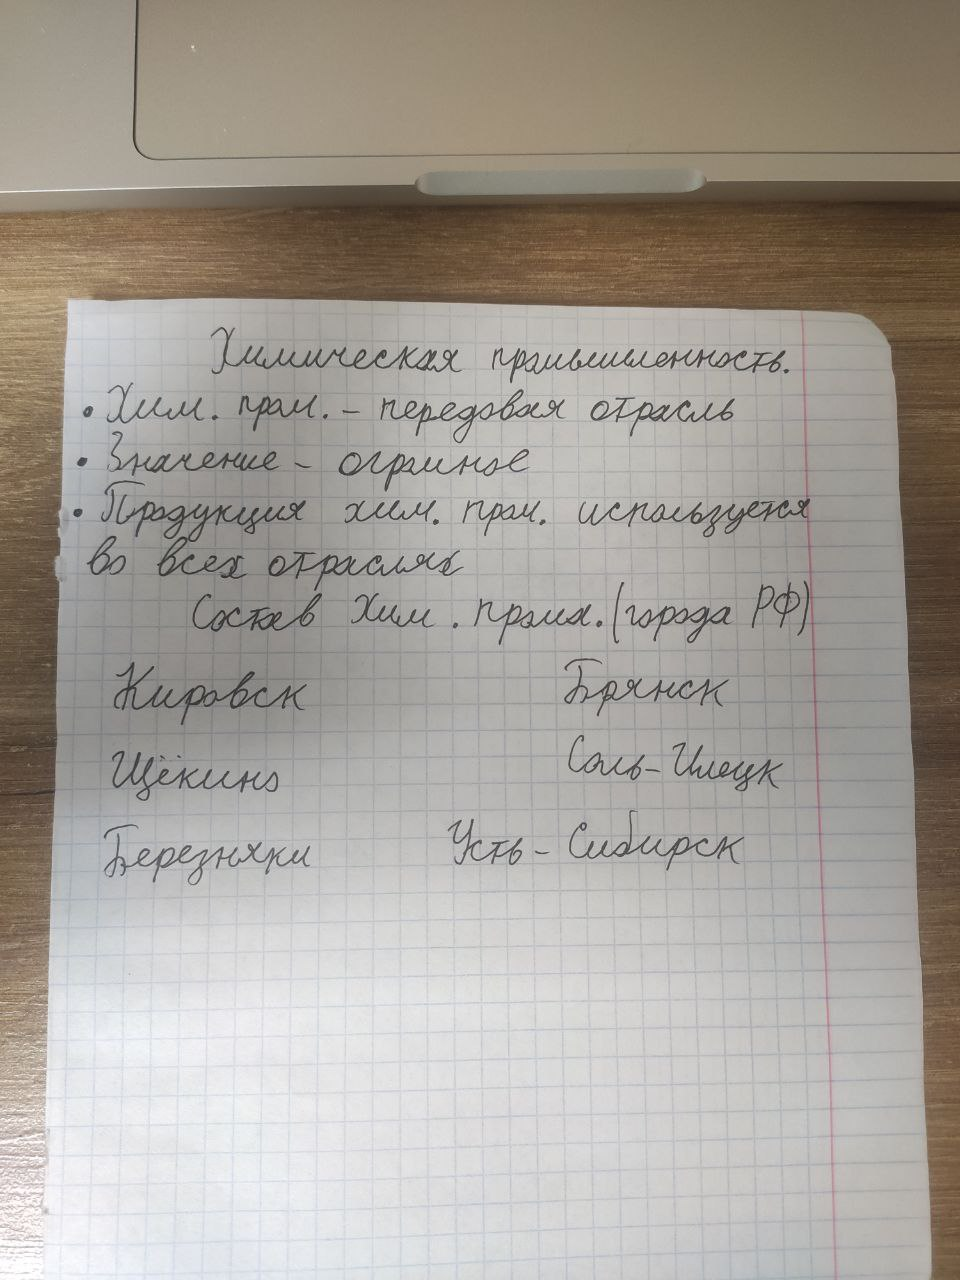 Химическая промышленность.
• Хим. пром. – передовая отрасль
• Значение – огромное
• Продукция хим. пром. используется
во всех отраслях
Состав Хим. пром. (города РФ)
Кировск Брянск
Щёкино Соль-Илецк
Березняки Усть-Сибирск